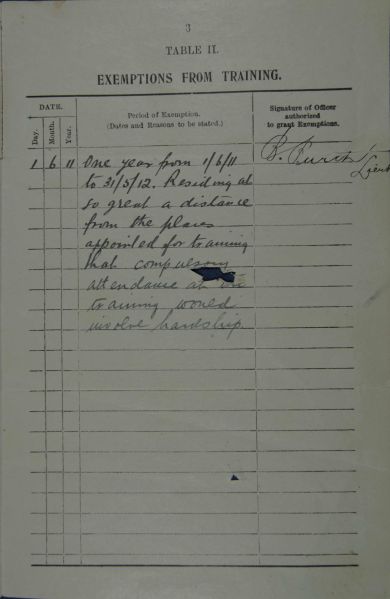 3
TABLE II.
EXEMPTIONS FROM TRAINING.
DATE.
Day. Month. Year.
Period of Exemption.
(Dates and Reasons to be stated.)
Signature of Officer
authorized
to grant Exemptions.
1 6 11 One year from 1/6/11
to 31/5/12. Residing at
so great a distance
from the places
appointed for training
that compulsory
attendance at
training would
involve hardship.
B. Lieut